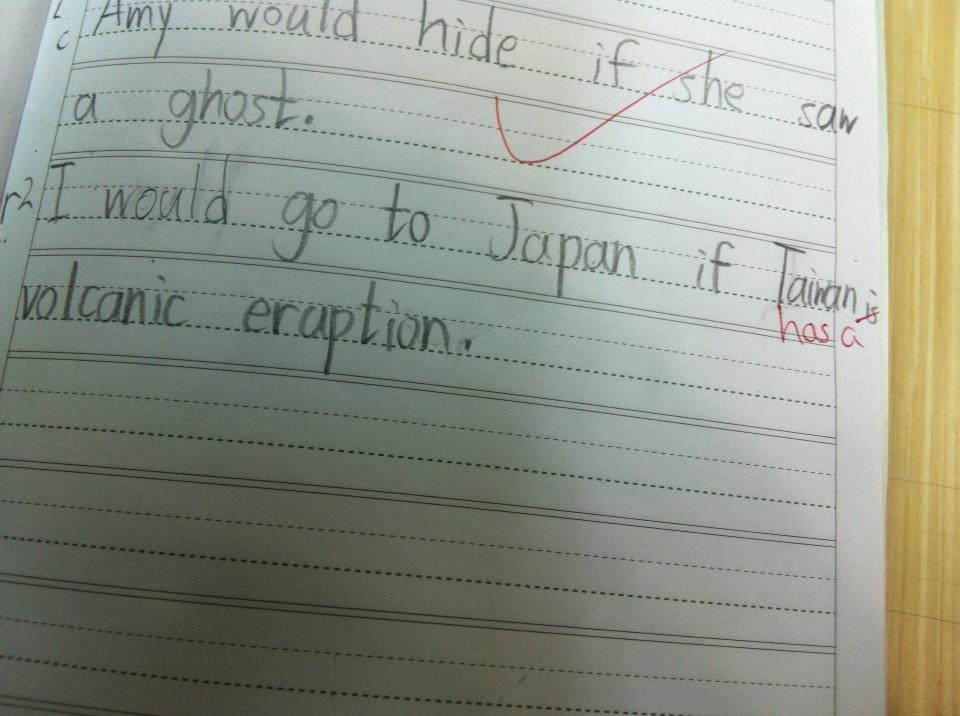 Amy would hide if she saw
a ghost.
r2 I would go to Japan if Taiwan is
has a
volcanic eruption.